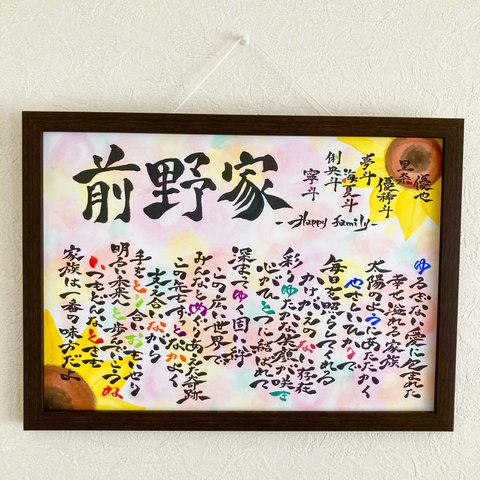 前野家
優也
里奈
優稀斗
夢斗
海夏斗
倖央斗
寧斗
-Happy family-
ゆるぎない愛に包まれた
幸せ溢れる家族
太陽のようにあたたかく
やさしいひかりで
毎日を照らしてくれる
かけがえのない存在
彩りゆたかな笑顔が咲き
心がひとつに結ばれて
深まりゆく固い絆
この広い世界で
みんなとめぐりあえた奇跡
この先もずっとなかよく
支え合いながら
手をとり合いおもいやり
明るい未来へと歩んでいこうね
いつもどんなときも
家族は一番の味方だよ